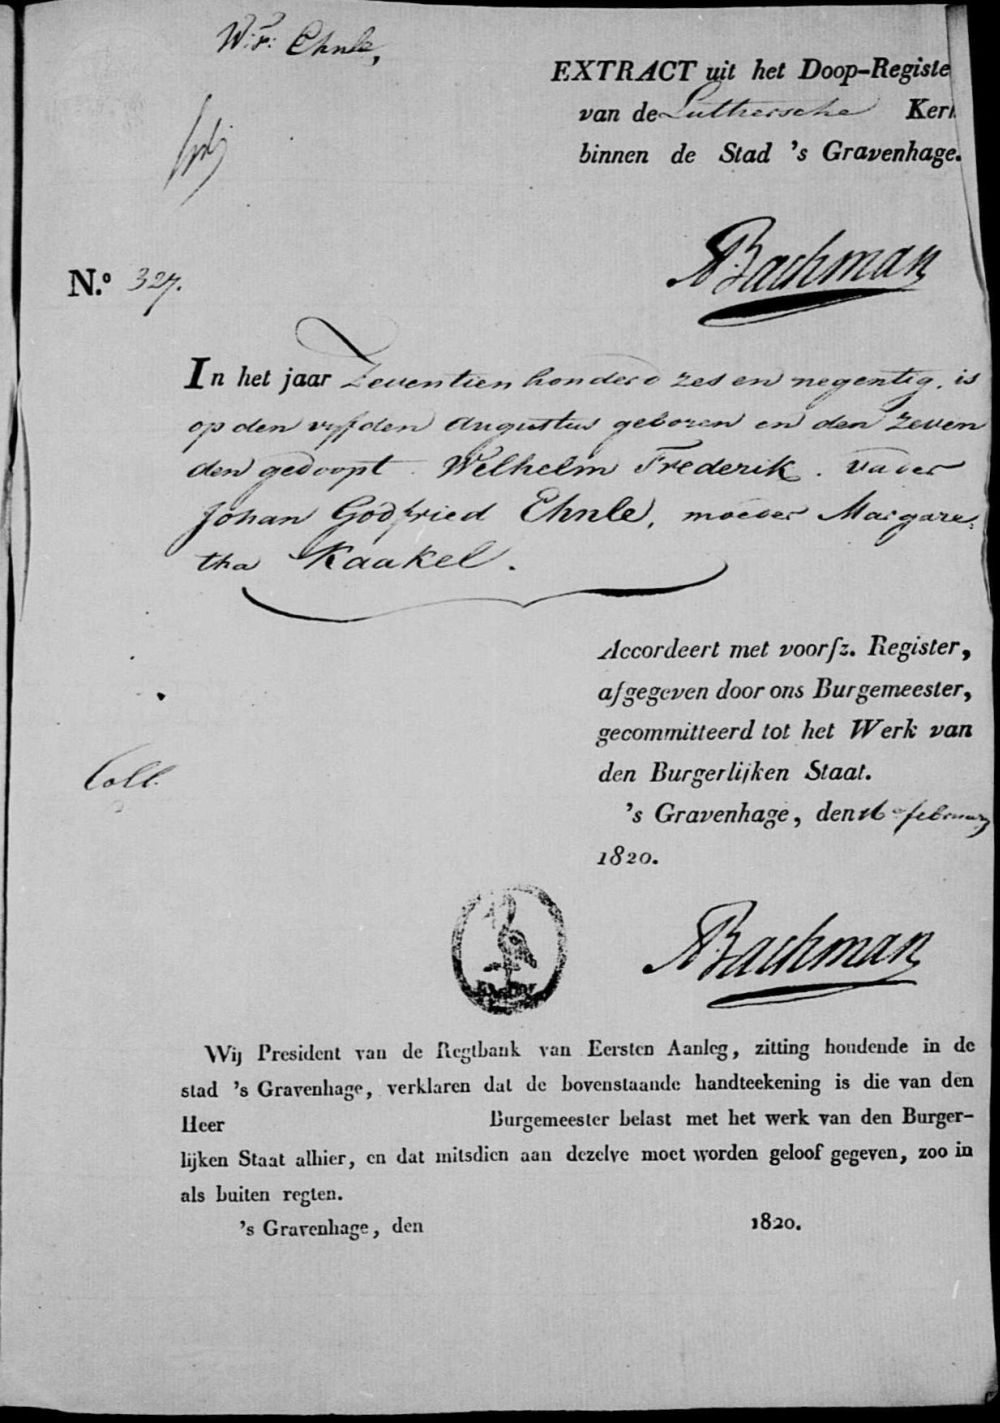 W: F: Ehnle,
EXTRACT uit het Doop-Registe
van de Luthersche Kerk
binnen de Stad 's Gravenhage.
Bachman
N.º 327.
In het jaar Zeventien honderd zes en negentig, is
op den vyfden Augustus geboren en den zeven
den gedoopt. Welhelm Frederik. vader
Johan Godfried Ehnle, moeder Margare,
tha Kaakel.
Accordeert met voorſz. Register,
afgegeven door ons Burgemeester,
gecommitteerd tot het Werk van
den Burgerlijken Staat.
Coll.
's Gravenhage, den 16 februarij
1820.
Bachman
Wij President van de Regtbank van Eersten Aanleg, zitting houdende in de
stad 's Gravenhage, verklaren dat de bovenstaande handteekening is die van den
Heer Burgemeester belast met het werk van den Burger-
lijken Staat alhier, en dat mitsdien aan dezelve moet worden geloof gegeven, zoo in
als buiten regten.
's Gravenhage, den 1820.